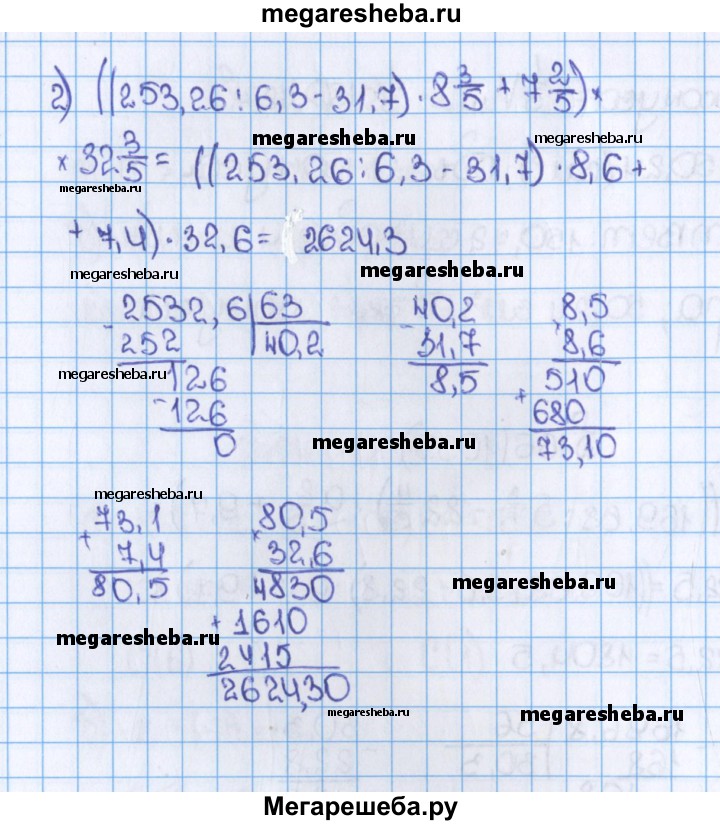 megaresheba.ru
2) ((253,26 : 6,3 - 31,7) · 8 3/5 + 7 2/5) ×
megaresheba.ru megaresheba.ru
× 32 3/5 = ((253,26 : 6,3 - 31,7) · 8,6 +
megaresheba.ru
+ 7,4) · 32,6 = 2624,3
megaresheba.ru megaresheba.ru
- 2532,6 | 63 - 40,2 × 8,5
252 | 40,2 31,7 8,6
megaresheba.ru 126 8,5 510
- 126 + 680
0 megaresheba.ru 73,10
megaresheba.ru
+ 73,1 × 80,5
7,4 32,6
80,5 4830 megaresheba.ru
+ 1610
megaresheba.ru
2415
2624,30
megaresheba.ru megaresheba.ru
Мегарешеба.ру